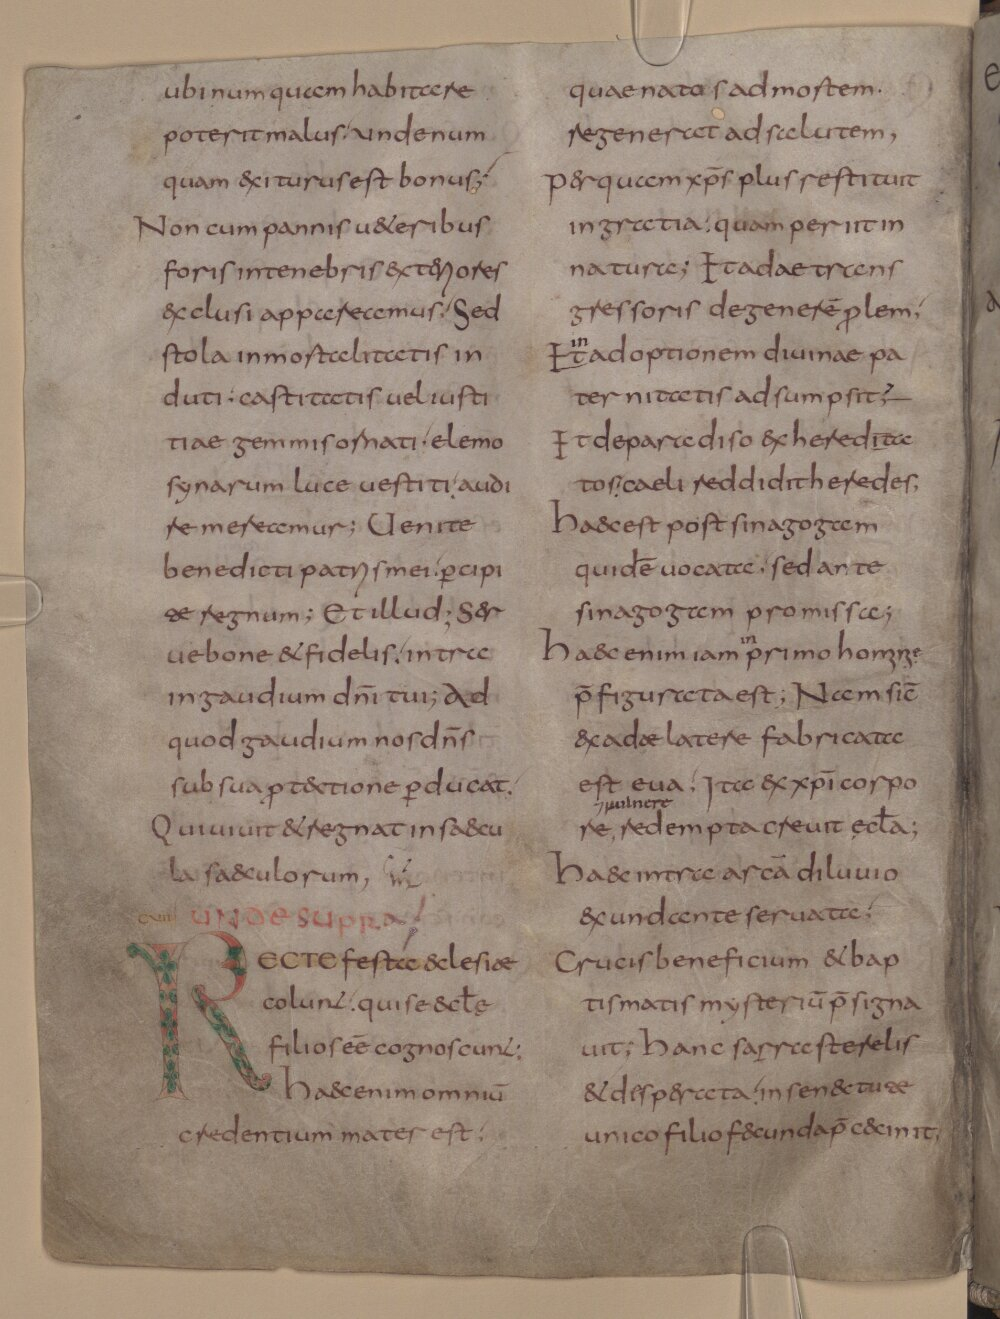 ubi numquam habitare
poterit malus; unde num
quam exiturus est bonus;
Non cum pannis ueteribus
foris in tenebris exteriores
exclusi appareamus; Sed
stola inmortalitatis in
duti· castitatis uel iusti
tiae gemmis ornati· elemo
synarum luce uestiti; audi
re mereamur; Uenite
benedicti patris mei· ꝑcipi
te regnum; Et illud; Ser
ue bone & fidelis; intra
in gaudium dn̄i tui; Ad
quod gaudium nos dn̄s
sub sua ꝓtectione ꝑducat;
Qui uiuit & regnat in saecu
la saeculorum,
UNDE SUPRA
RECTE festa eclesiae
colunt; qui se ecl̄ę
filios eē cognoscunt;
Haec enim omniū
credentium mater est;
quae natos ad mortem·
regenerat ad salutem,
Per quam xp̄s plus restituit
in gratia; quam periit in
natura; Et adae trans
gressoris degenerē ꝓlem;
Et in adoptionem diuinae pa
ternitatis adsumpsit;
Et de paradiso exheredita
tos; caeli reddidit heredes;
Haec est post sinagogam
quidē uocata· sed ante
sinagogam promissa;
Haec enim iam in primo homine
p̄figurata est; Nam sic̄
ex adae latere fabricata
est eua; Ita ex xp̄i corpo
re, uulnere redempta creuit ecl̄a;
Haec intra arcā diluuio
exundante seruata;
Crucis beneficium & bap
tismatis mysteriū p̄signa
uit; Hanc sarra sterelis
& desperata; in senectute
unico filio fecunda p̄cecinit;